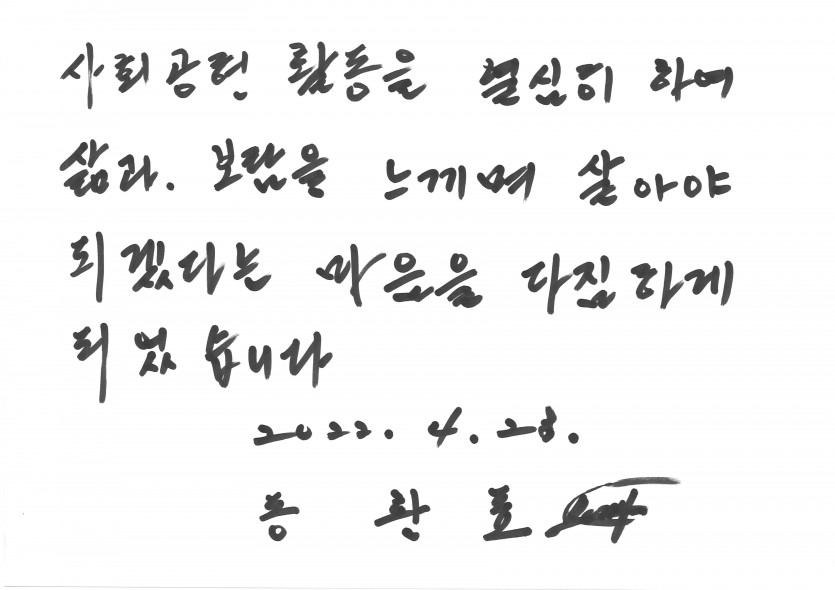 사회공헌 활동을 열심히 하여
삶과. 보람을 느끼며 살아야
되겠다는 마음을 다짐하게
되었습니다
2022. 4. 28.